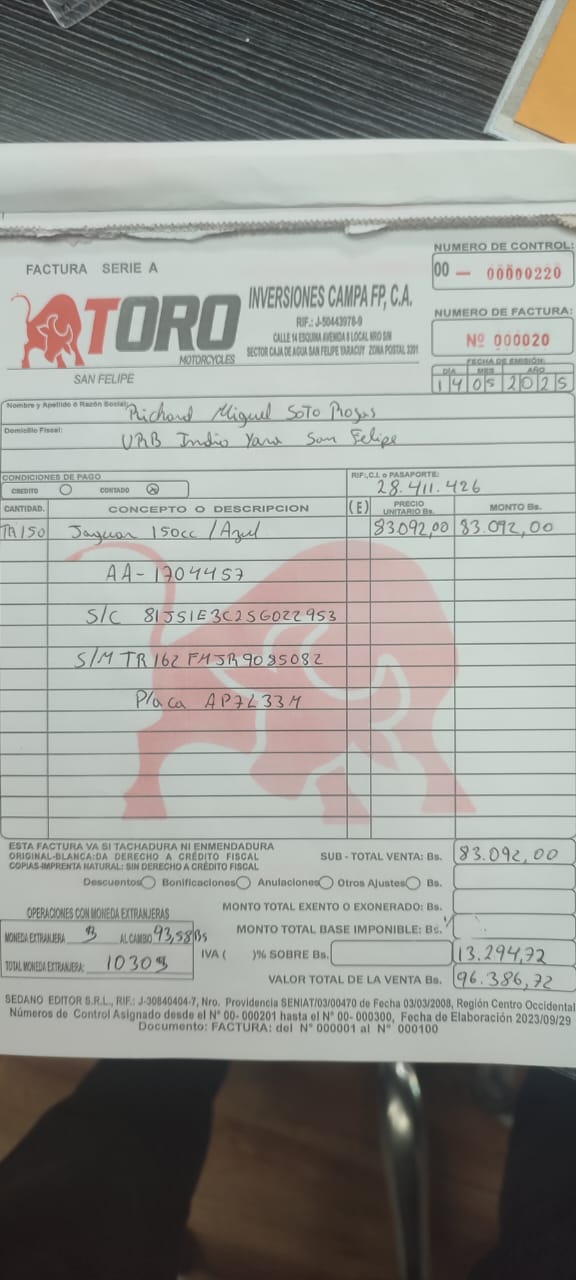 NUMERO DE CONTROL:
FACTURA SERIE A
00 — 00000220
TORO
MOTORCYCLES
SAN FELIPE
INVERSIONES CAMPA FP, C.A.
RIF.: J-50443978-9
CALLE 14 ESQUINA AVENIDA 8 LOCAL NRO S/N
SECTOR CAJA DE AGUA SAN FELIPE YARACUY ZONA POSTAL 3201
NUMERO DE FACTURA:
Nº 000020
FECHA DE EMISIÓN:
DÍA MES AÑO
14 05 2025
Nombre y Apellido ó Razón Social: Richard Miguel Soto Rojas
Domicilio Fiscal: URB Indio Yara San Felipe
CONDICIONES DE PAGO
CREDITO CONTADO
RIF:,C.I. o PASAPORTE:
28.411.426
CANTIDAD. CONCEPTO O DESCRIPCION (E) PRECIO UNITARIO Bs. MONTO Bs.
TR150 Jaguar 150cc / Azul 83.092,00 83.092,00
AA-1704457
S/C 81JS1E3C2SG022953
S/M TR162FMJSR9085082
Placa AP7L33M
ESTA FACTURA VA SI TACHADURA NI ENMENDADURA
ORIGINAL-BLANCA:DA DERECHO A CRÉDITO FISCAL
COPIAS-IMPRENTA NATURAL: SIN DERECHO A CRÉDITO FISCAL
SUB - TOTAL VENTA: Bs. 83.092,00
Descuentos Bonificaciones Anulaciones Otros Ajustes Bs.
MONTO TOTAL EXENTO O EXONERADO: Bs.
OPERACIONES CON MONEDA EXTRANJERAS
MONTO TOTAL BASE IMPONIBLE: Bs.
MONEDA EXTRANJERA $ AL CAMBIO 93,58Bs
IVA ( )% SOBRE Bs. 13.294,72
TOTAL MONEDA EXTRANJERA: 1030$
VALOR TOTAL DE LA VENTA Bs. 96.386,72
SEDANO EDITOR S.R.L., RIF.: J-30840404-7, Nro. Providencia SENIAT/03/00470 de Fecha 03/03/2008, Región Centro Occidental
Números de Control Asignado desde el N° 00- 000201 hasta el N° 00- 000300, Fecha de Elaboración 2023/09/29
Documento: FACTURA: del N° 000001 al N° 000100